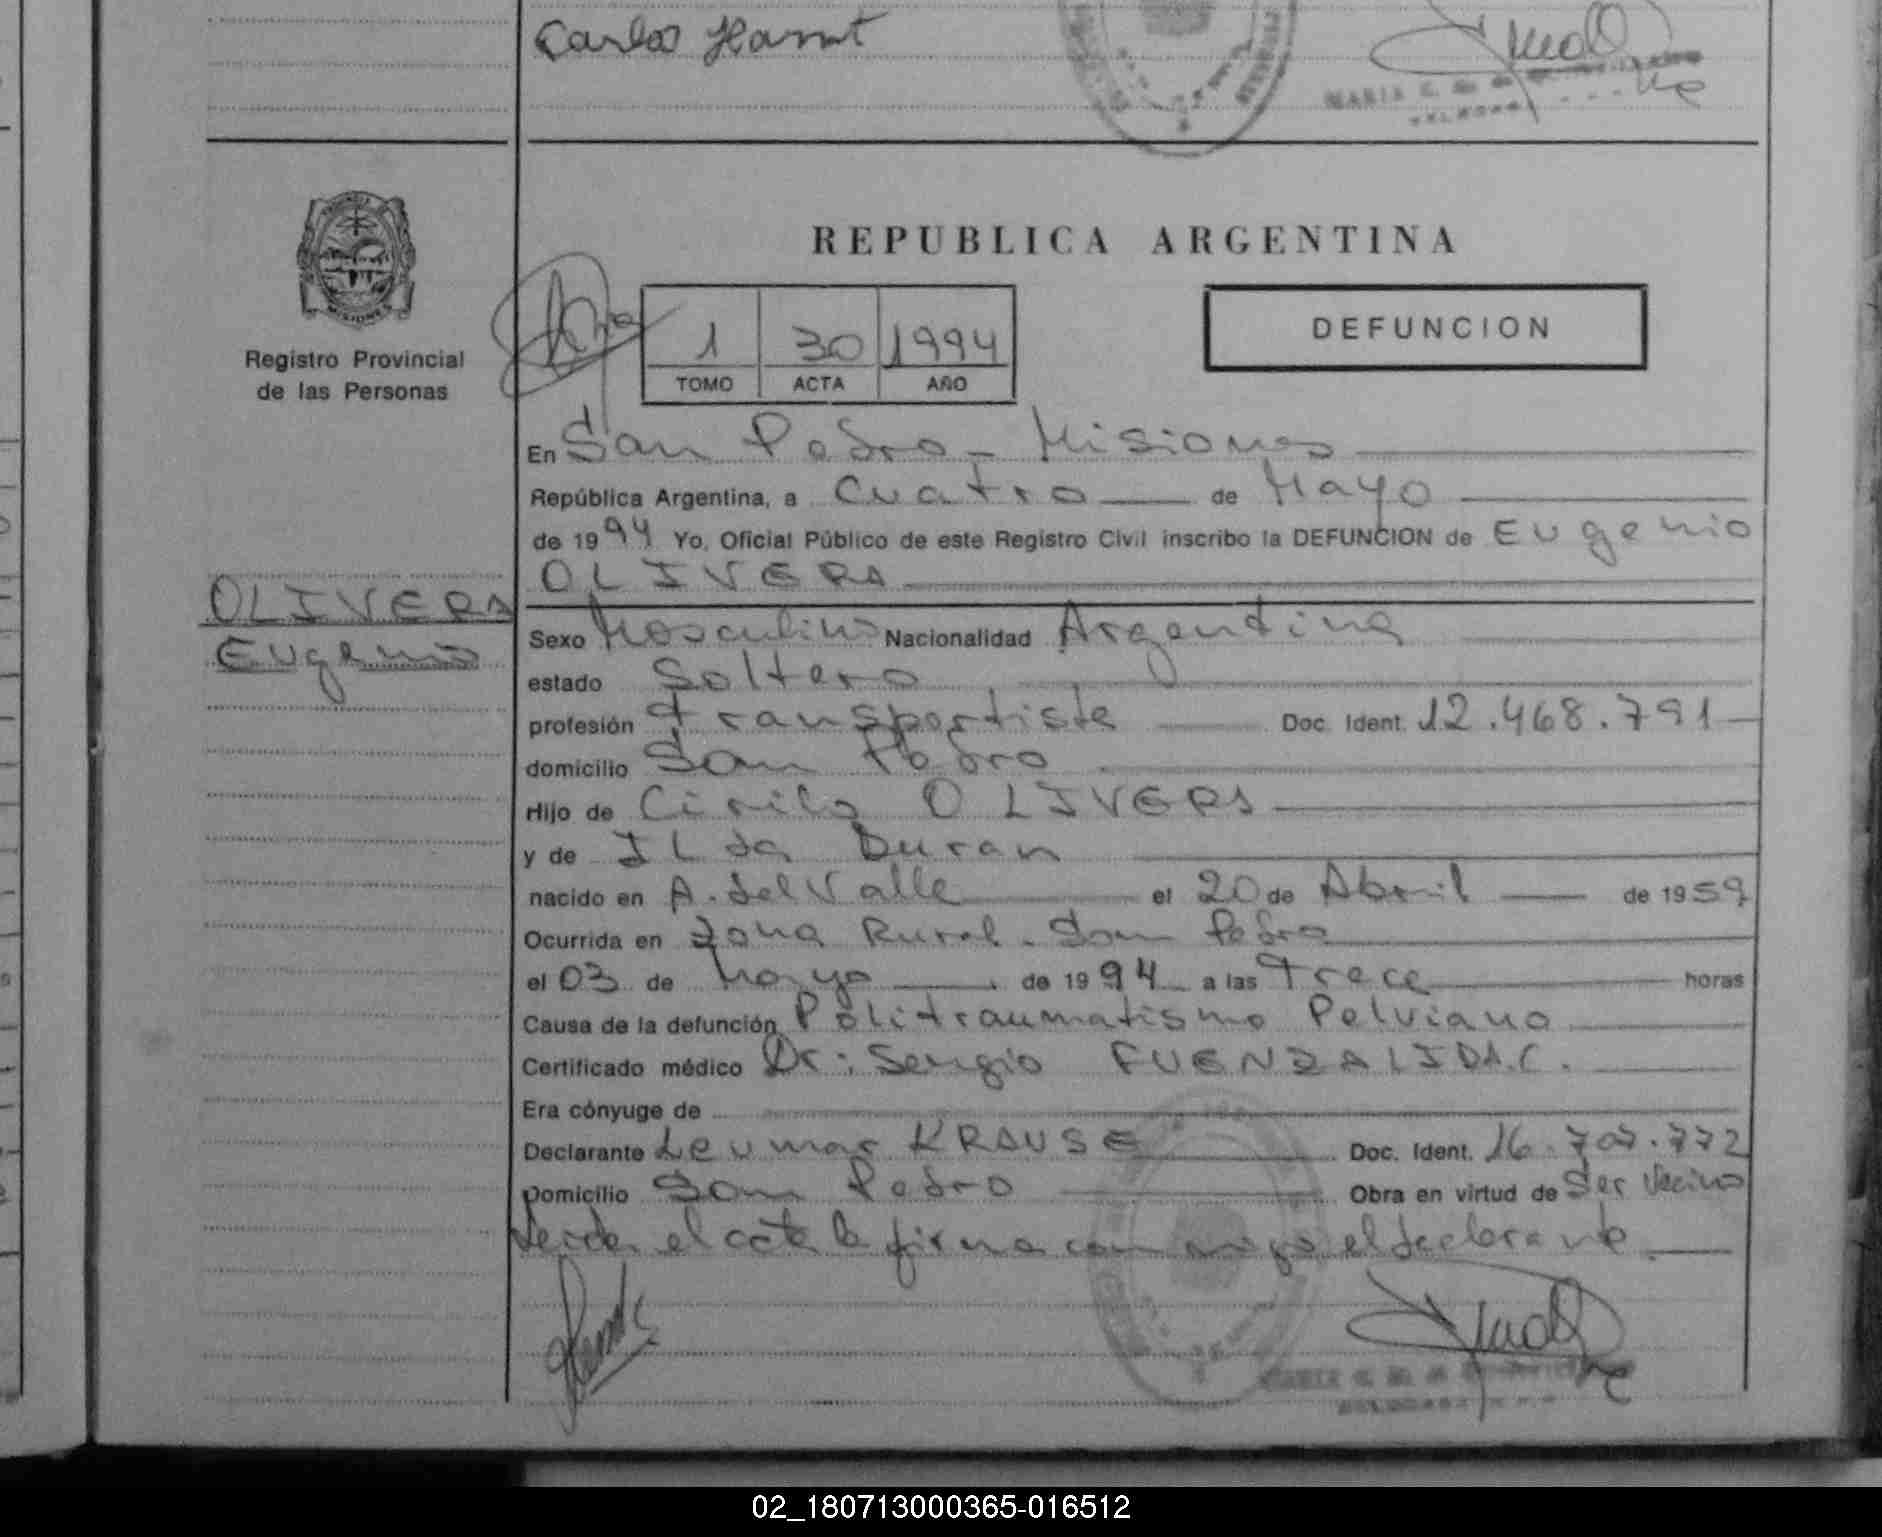 Carlos
REPUBLICA ARGENTINA
MISIONES
Registro Provincial
de las Personas
1 30 1994
TOMO ACTA AÑO
DEFUNCION
En San Pedro - Misiones
República Argentina, a Cuatro de Mayo
de 1994 Yo, Oficial Público de este Registro Civil inscribo la DEFUNCION de Eugenio
OLIVERA
OLIVERA
Eugenio
Sexo Masculino Nacionalidad Argentina
estado Soltero
profesión Transportista Doc. Ident. 12.468.791
domicilio San Pedro
Hijo de Cirilo OLIVERA
y de ILda Duran
nacido en A. del Valle el 20 de Abril de 1959
Ocurrida en Zona Rural - San Pedro
el 03 de Mayo de 1994 a las Trece horas
Causa de la defunción Politraumatismo Pelviano
Certificado médico Dr: Sergio FUENZALIDA.C.
Era cónyuge de
Declarante Leumar KRAUSE Doc. Ident. 16.707.772
Domicilio San Pedro Obra en virtud de Ser Vecino
Leida el acta la firma con migo el declarante
MARIA
02_180713000365-016512